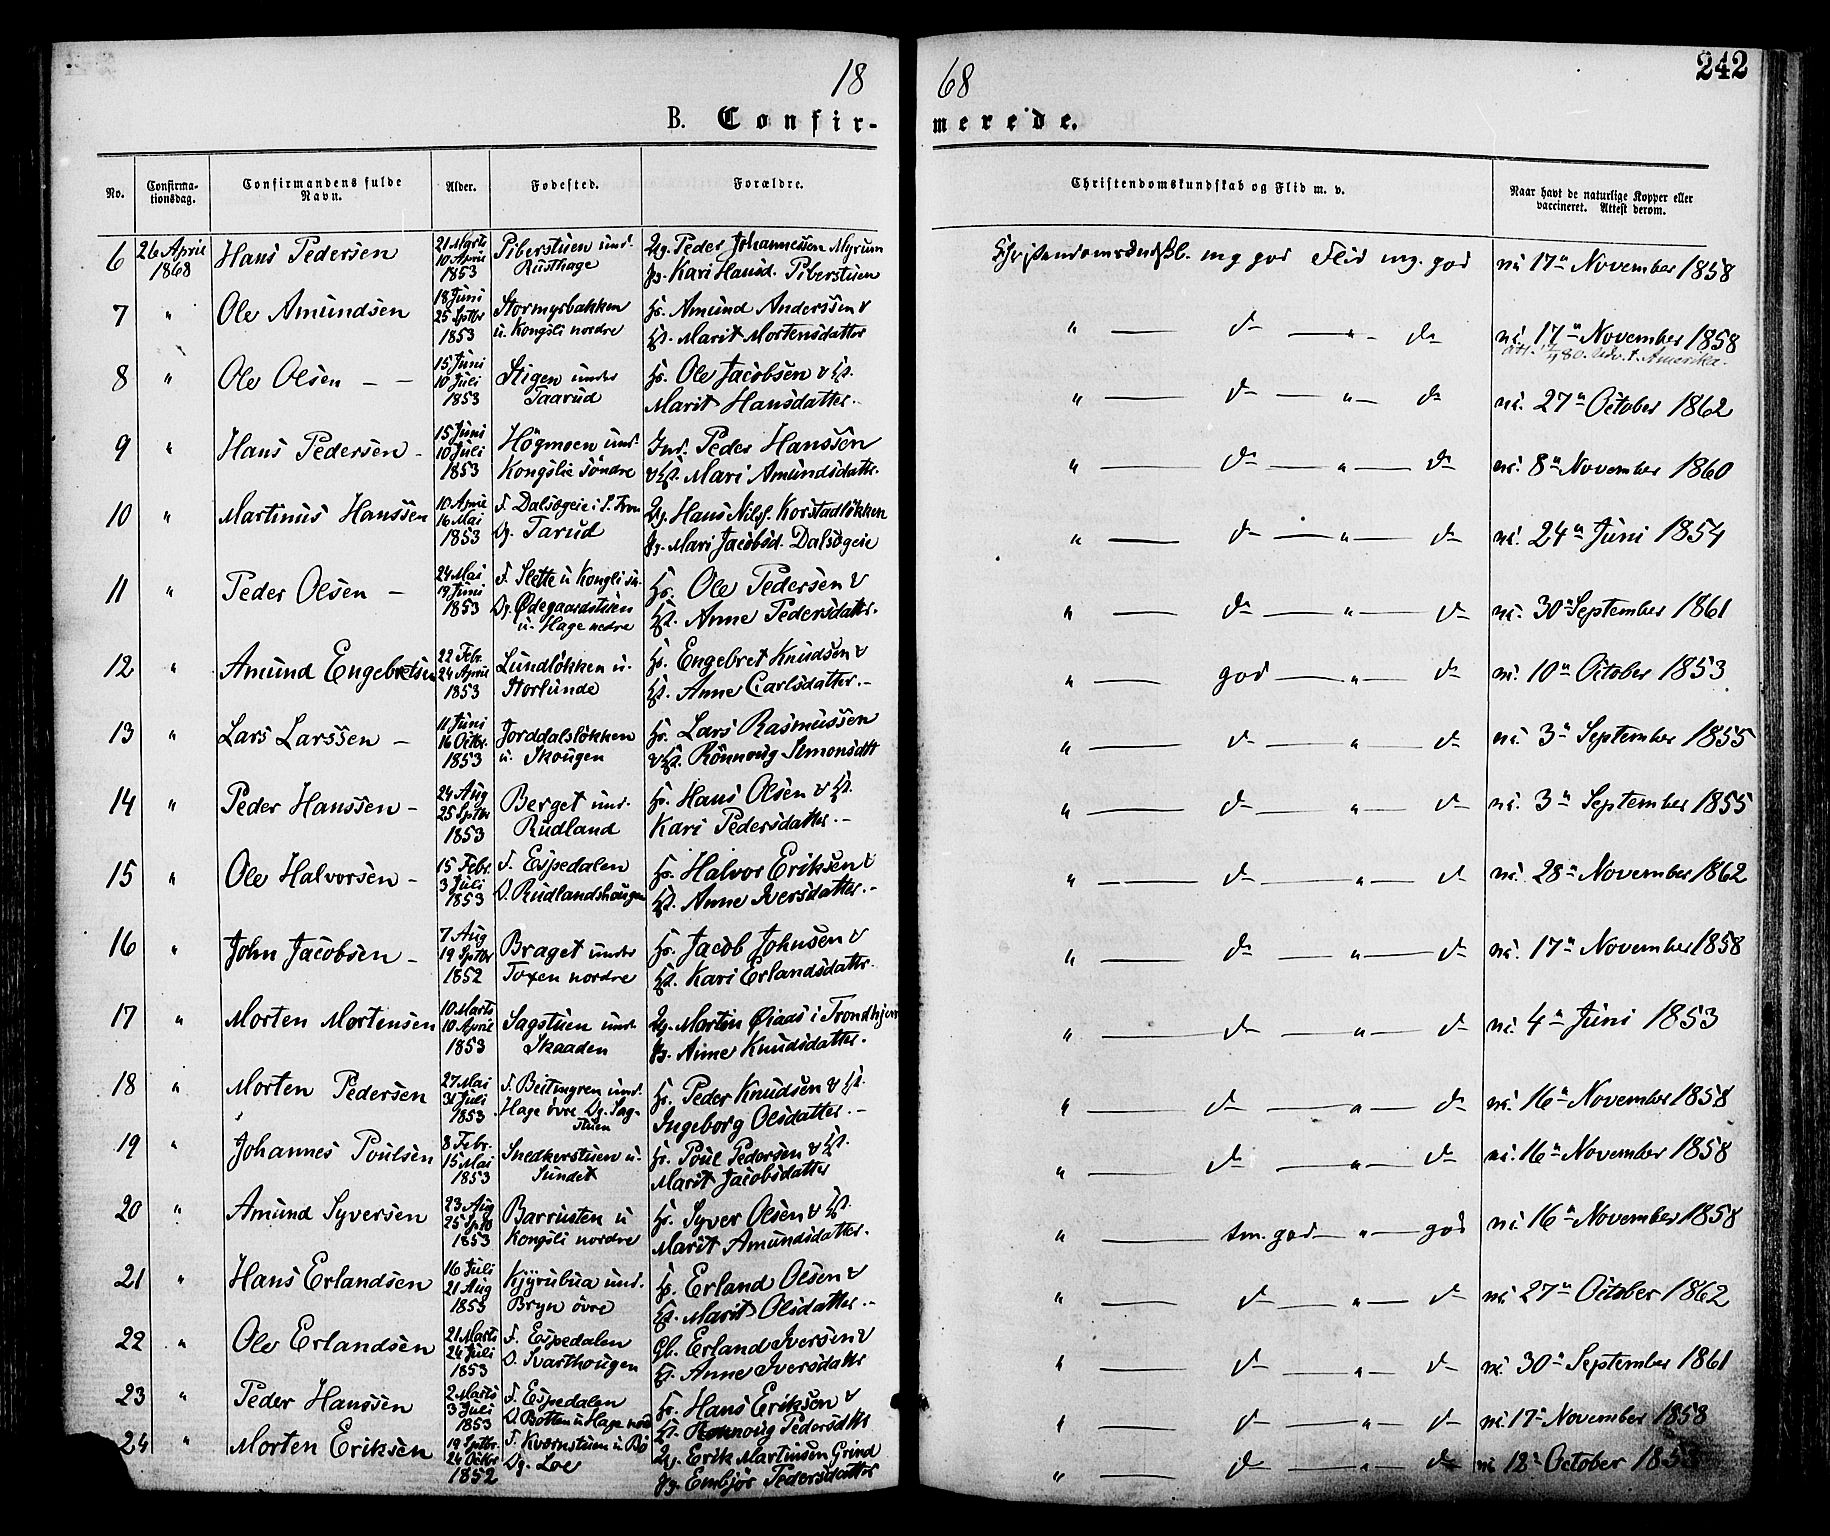 18 68
242
B. Confir- merede.
No. Confirma- tionsdag. Confirmandens fulde Navn. Alder. Fodested. Forældre. Christendomskundskab og Flid m. v. Naar havt de naturlige Kopper eller vaccineret. Attest derom.
6 26 April 1868 Hans Pedersen 21 Marts 10 April 1853 Piberstuen und. Rusthage Ug. Peder Johannessen Myrum Pg. Kari Hansd. Piberstuen mg god Flid mg. god 17de November 1858
7 " Ole Amundsen 18 Juni 25 Sptbr 1853 Stormyrbakken u. Kongsli nordre Hs. Amund Anderssen & Hst. Marit Mortensdatter " — do — " — do 17de November 1858
Amerika.
8 " Ole Olsen — — 15 Juni 10 Juli 1853 Stigen under Taarud Hs. Ole Jacobsen & Hst. Marit Hansdatter. " — do — " — do 27de October 1862
9 " Hans Pedersen — 15 Juni 10 Juli 1853 Högmoen und. Kongslie söndre Ind. Peder Hanssen & Hst. Mari Amundsdatter. " — do — " — do 8de November 1860
10 " Martinus Hanssen 10 April 16 Mai 1853 F. Dalsögeie i S. Fron Dg. Tarud Ug. Hans Nilss. Korstadlökken Pg. Mari Jacobsd. Dalsögeie " — do — " — do 24de Juni 1854
11 " Peder Olsen — 24 Mai 19 Juni 1853 F. Slette u Kongli sö. Dg. Ødegaardstuen u. Hage nedre Hs. Ole Pedersen & Hst. Anne Pedersdatter. " — do — " — do 30 September 1861
12 " Amund Engebretsen 22 Febr. 24 April 1853 Lundlökken u. Storlunde Hs. Engebret Knudsen & Hst. Anne Carlsdatter. — " — god — " — do 10de October 1853
13 " Lars Larssen — 11 Juni 16 Octbr. 1853 Jorddalslökken u. Skougen Hs. Lars Rasmussen & Hst. Rönnoug Simonsdtt " — do — " — do 3de September 1855
14 " Peder Hanssen — 24 Aug 25 Sptbr 1853 Berget und. Rudland Hs. Hans Olsen & Hst. Kari Pedersdatter. — " — do — " — do 3de September 1855
15 " Ole Halvorsen — 15 Febr. 3 Juli 1853 F. Espedalen D. Rudlandshaugen Hs. Halvor Eriksen & Hst. Anne Iversdatter. — " — do — " — do 28de November 1862
16 " John Jacobsen — 7 Aug 19 Sptbr 1852 Braget under Toxen nordre Hs. Jacob Johnsen & Hst. Kari Erlandsdatter. " — do — " — do 17de November 1858
17 " Morten Mortensen 10 Marts 10 April 1853 Sagstuen und. Skaaden Ug. Morten Øiaas i Trondhjem Pg. Anne Knudsdatter. " — do — " — do 4de Juni 1853
18 " Morten Pedersen 27 Mai 31 Juli 1853 F. Beitmyren und. Hage övre Dg. Sag- stuen Hs. Peder Knudsen & Hst. Ingeborg Olsdatter. — " — do — " — do 16de November 1858
19 " Johannes Poulsen 8 Febr. 15 Mai 1853 Snedkerstuen u. Sundet Hs. Poul Pedersen & Hst. Marit Jacobsdatter " — do — " — do 16de November 1858
20 " Amund Syversen 23 Aug 25 Sptb 1853 Barrusten u Kongsli nordre Hs. Syver Olsen & Hst. Marit Amundsdatter. " — tm. god — " — god 16de November 1858
21 " Hans Erlandsen 16 Juli 21 Aug 1853 Kjyrubua und. Bryn övre Hs. Erland Olsen & Hst. Marit Olsdatter. — " — do — " — do 27de October 1862
22 " Ole Erlandsen 21 Marts 24 Juli 1853 F. Espedalen D. Svarthougen Gb. Erland Iversen & Hst. Anne Iversdatter " — do — " — do 30de September 1861
23 " Peder Hanssen 2 Marts 3 Juli 1853 F. Espedalen D. Botten u Hage nord Hs. Hans Eriksen & Hst. Rönnoug Pedersdtt " — do — " — do 17de November 1858
24 " Morten Eriksen 19 Sptbr. 24 Octbr 1852 F. Kværnstuen u. Bö Dg. Loe Ug. Erik Martinsen Grind Pg. Embjör Pedersdatter " — do — " — do 12de October